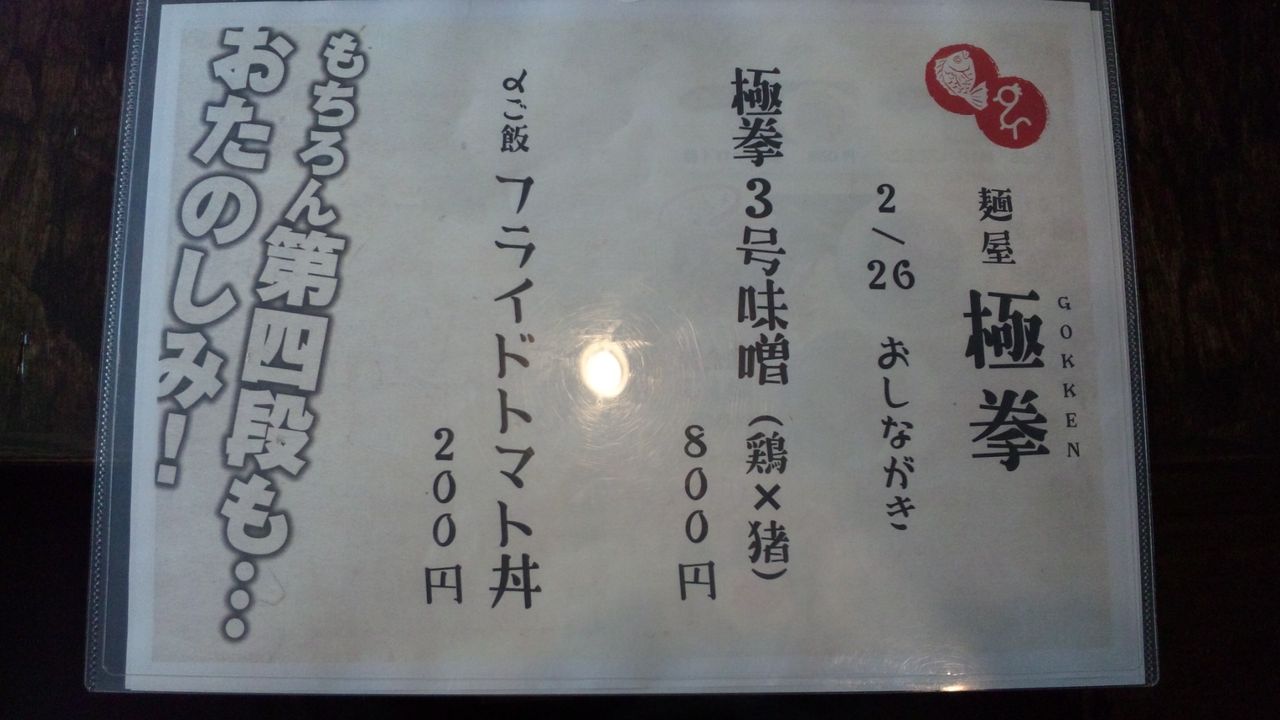 麺屋 極拳
GOKKEN
2/26 おしながき
極拳3号味噌(鶏×猪)
800円
〆ご飯 フライドトマト丼
200円
もちろん第四段も…
おたのしみ!